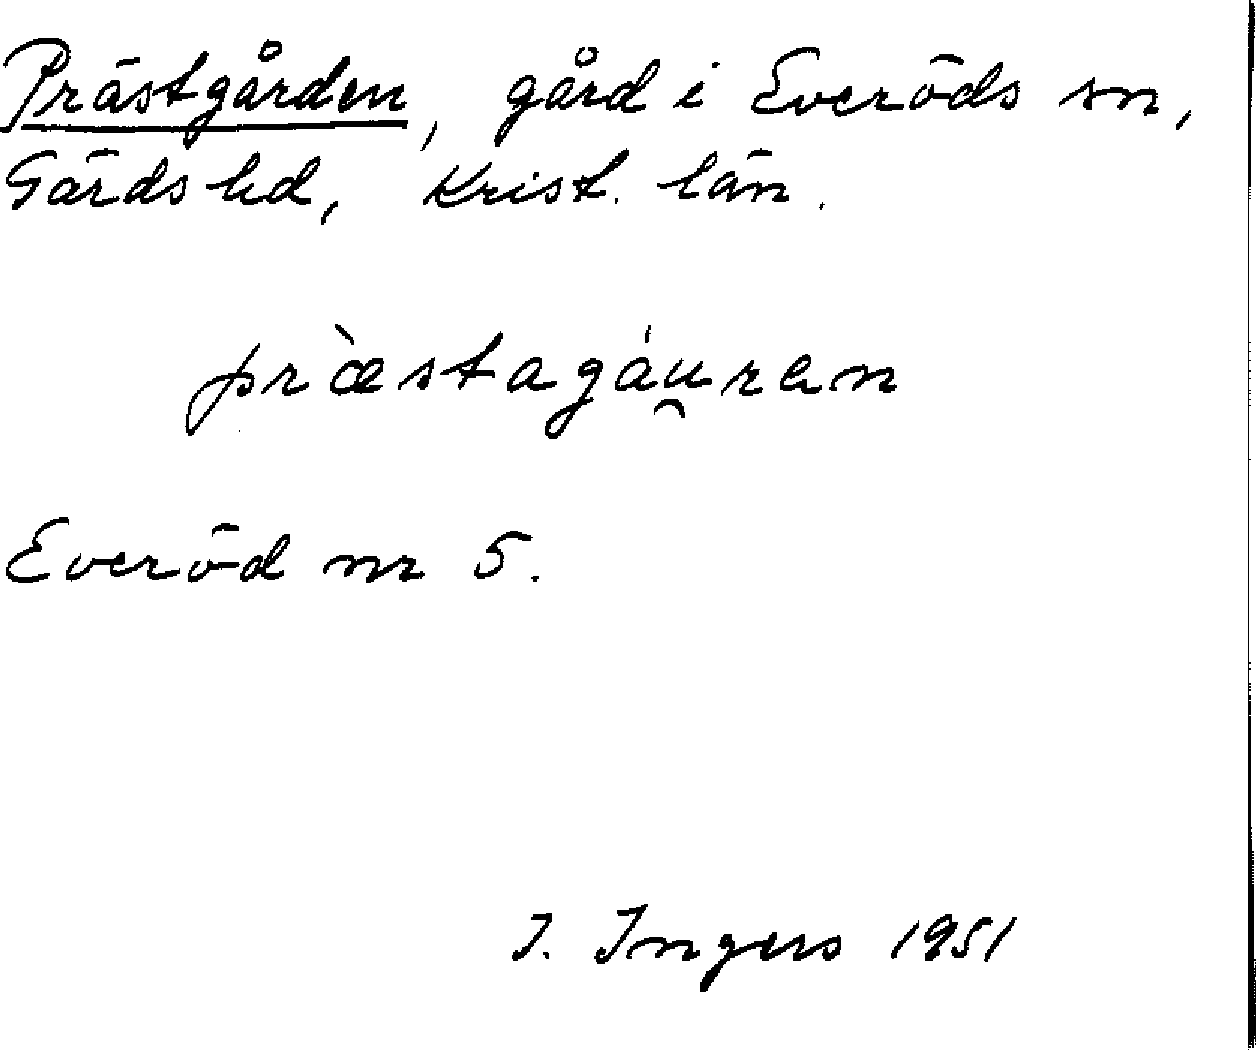 Prästgården, gård i Everöds sn,
Gärds hd, Krist. län.
præ̀stagáu̯ran
Everöd nr 5.
I. Ingers 1951